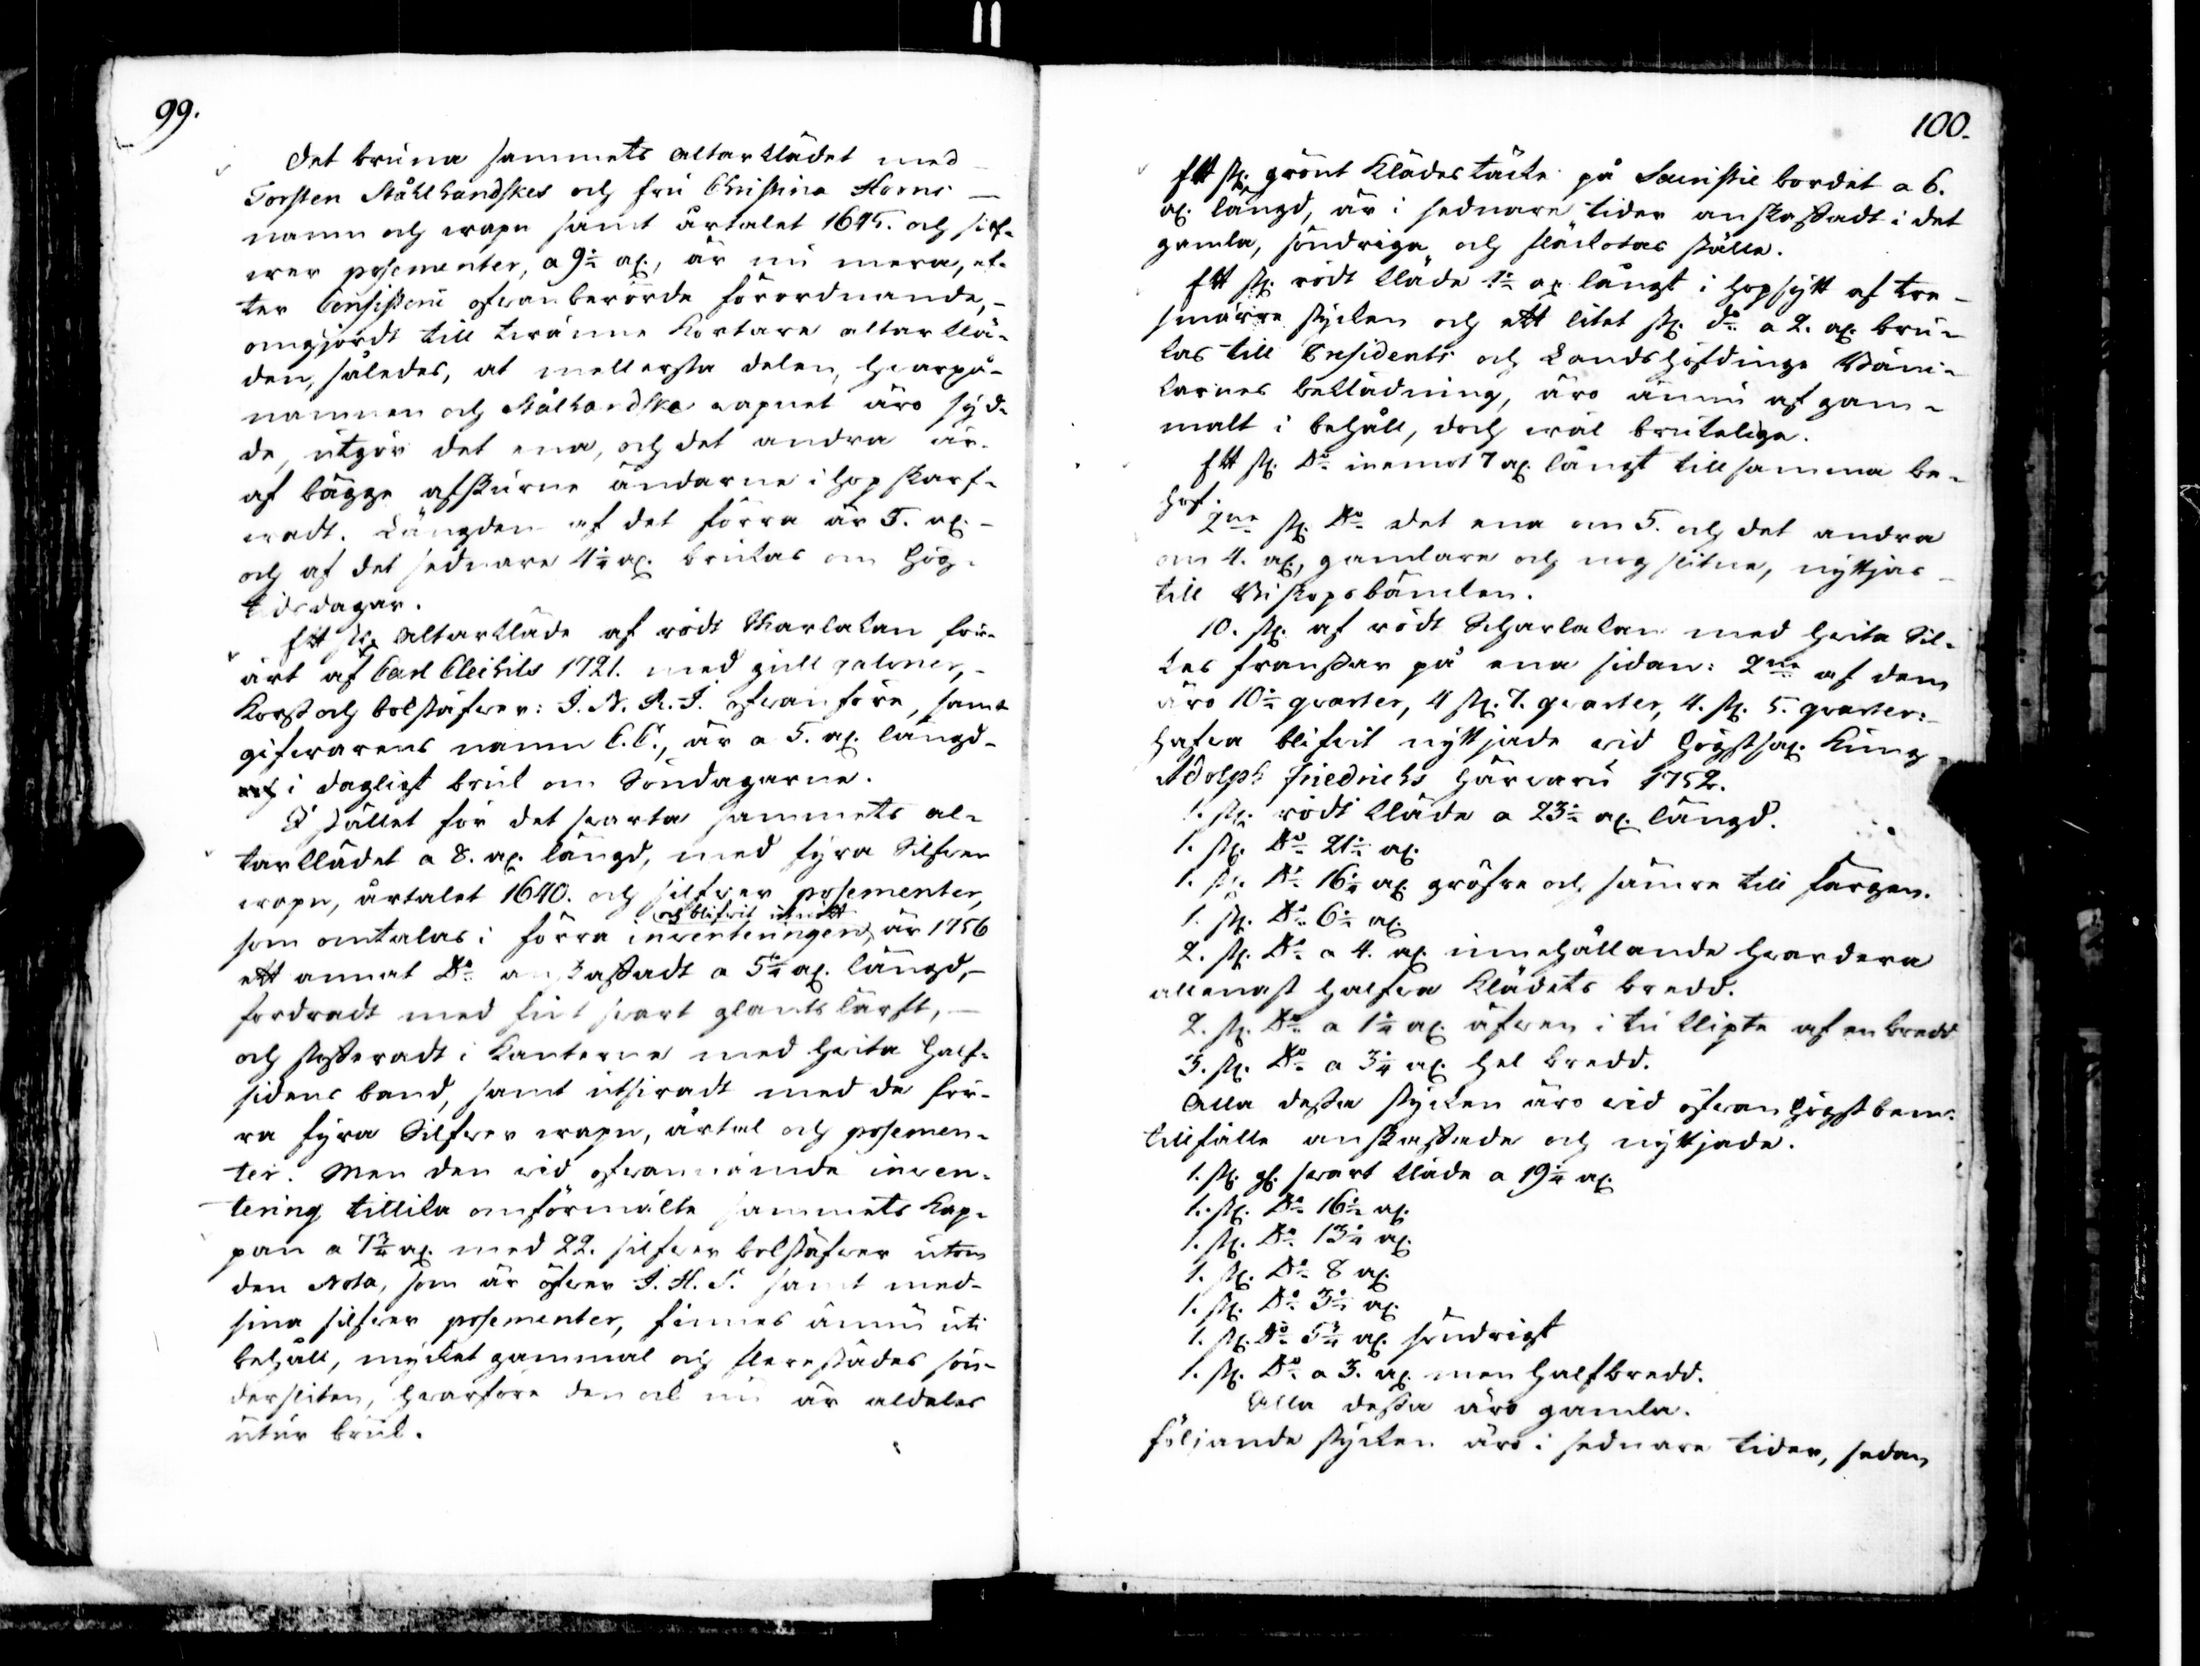 99.
Det bruna sammets altarklädet med
Torsten Stålhandskes och fru Christina Horns
namn och wapn samt årtalet 1645. och silf-
wer posementer, a 9½ al., är nu mera, ef-
ter Consistorii ofwanberörde förordnande,
omgjordt till twänne kortare altarklä-
den, således, at mellersta delen, hwarpå
namnen och Stålhandske wapnet äro syd-
de, utgör det ena, och det andra är
af bägge afskurne ändarne i hop skarf-
wadt. Längden af det förra är 5. al.
och af det sednare 4½ al. brukas om Hög-
tidsdagar.
Ett st. Altarkläde af rödt Skarlakan för-
ärt af Carl Cleihils 1721. med gull galoner,
Kors och bokstäfwer: I. N. R. I. ofwanföre, samt
gifwarens namn C. C., är a 5. al. längd
i dagligt bruk om Söndagarne.
I stället för det swarta sammets al-
tarklädet a 8. al. längd, med fyra Silfwer
wapn, årtalet 1640. och silfwer posementer,
och blifwit
som omtalas i förra inwenteringen, är 1756
ett annat Do anskaffadt a 5¼ al. längd,
fordradt med fint swart glants lärft,
och stofferadt i Kanterne med hwita half-
sidens band, samt utsiradt med de för-
ra fyra Silfwer wapn, årtal och posemen-
ter. Men den wid ofwannämde inwen-
tering tillika omförmälte sammets Kap-
pan a 7¾ al. med 22. silfwer bokstäfwer utom
den Nota, som är öfwer I. H. S. samt med
sina silfwer posementer, finnes ännu uti
behåll, mycket gammal och flerestädes sön-
dersliten, hwarföre den ock nu är aldeles
utur bruk.
100.
Ett st. grönt Klädestäcke på Sacristie bordet a 6.
al. längd, är i sednare tider anskaffadt i det
gamla, söndriga och fläckotas ställe.
Ett st. rödt kläde 1½ al. långt i hopsytt af tre
smärre stycken och ett litet st. do a 2. al. bru-
kas till Præsidents och Landshöfdinge Bänc-
karnes beklädning, äro ännu af gam-
malt i behåll, doch wäl brukelige.
Ett st. Do inemot 7 al. långt till samma be-
hof.
2ne st. Do det ena om 5. och det andra
om 4. al., gamlare och nog slitne, nyttjas
till Biskopsbäncken.
10. st. af rödt Scharlakan med hwita Sil-
kes fransar på ena sidan: 2ne af dem
äro 10½ qwarter, 4 st. 7. qwarter, 4. st. 5. qwarter:
hafwa blifwit nyttjade wid högstsal. Kung
Adolph Friedrichs härwaru 1752.
1. st. rödt kläde a 23½ al. längd.
1. st. Do 21½ al.
1. st. Do 16¼ al. gröfre och sämre till färgen.
1. st. Do 6½ al.
2. st. Do a 4. al. innehållande hwardera
allenast halfwa Klädets bredd.
2. st. Do a 1¼ al. äfwen i tu klipte af en bredd
3. st. Do a 3¼ al. hel bredd.
Alla dessa stycken äro wid ofwan högstbem:
tillfälle anskaffade och nyttjade.
1. st. gl. swart kläde a 19¼ al.
1. st. Do 16½ al.
1. st. Do 13¼ al.
1. st. Do 8 al.
1. st. Do 3½ al.
1. st. Do 5¾ al. söndrigt
1. st. Do a 3. al. men half bredd.
Alla dessa äro gamla.
Följande stycken äro i sednare tider, sedan